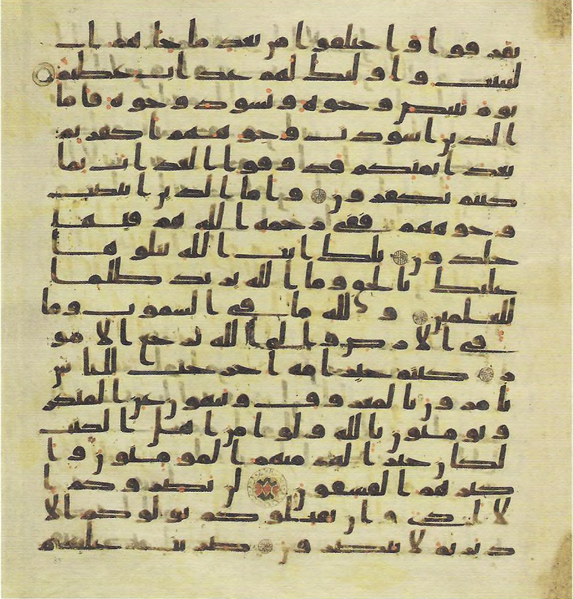 تفرقوا واختلفوا من بعد ما جاهم ا
لبينت واولئك لهم عذاب عظيم
يوم تبيض وجوه وتسود وجوه فاما
الذين اسودت وجوههم اكفرتم
بعد ايمنكم فذوقوا العذاب بما
كنتم تكفرون واما الذين ابيضت
وجوههم ففي رحمه الله هم فيها
خلدون تلك ايت الله نتلوها
عليك بالحق وما الله يريد ظلما
للعلمين ولله ما في السموت وما
في الارض والى الله ترجع الامو
ر كنتم خير امه اخرجت للناس
تامرون بالمعروف وتنهون عن المنكر
وتومنون بالله ولو امن اهل الكتب
لكان خيرا لهم منهم المومنون وا
كثرهم الفسقون لن يضروكم ا
لا اذى وان يقتلوكم يولوكم الا
دبر ثم لا ينصرون ضربت عليهم